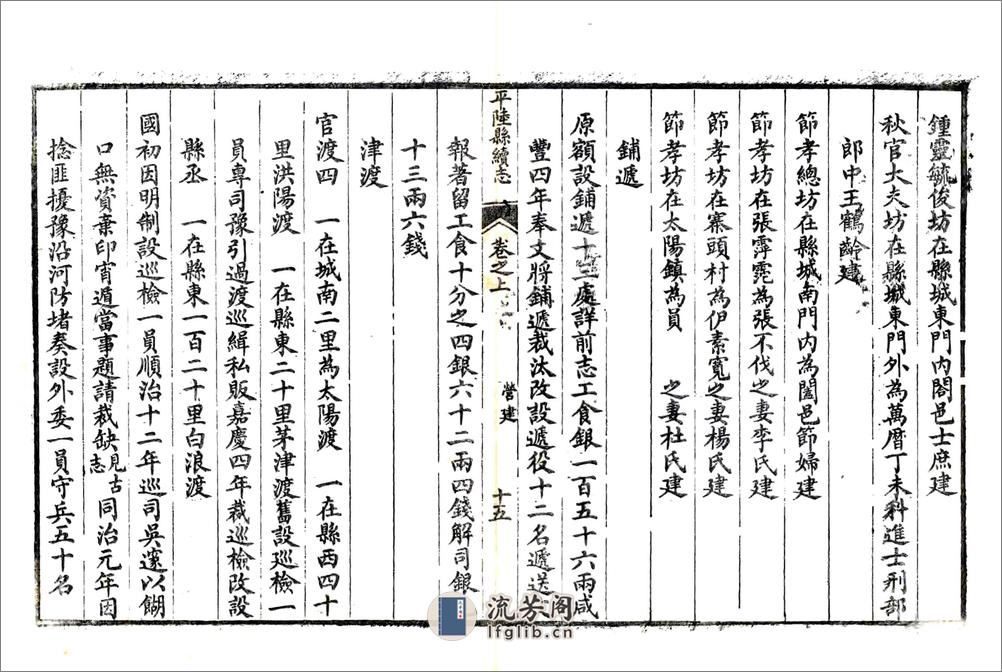 鍾靈毓俊坊在縣城東門內闔邑士庶建
秋官大夫坊在縣城東門外為萬曆丁未科進士刑部
郎中王鶴齡建
節孝總坊在縣城南門內為闔邑節婦建
節孝坊在張霽窊為張不伐之妻李氏建
節孝坊在寨頭村為伊素寬之妻楊氏建
節孝坊在太陽鎮為員　之妻杜氏建
鋪遞
原額設鋪遞十三處詳前志工食銀一百五十六兩咸
豐四年奉文將鋪遞裁汰改設遞役十二名遞送
報著留工食十分之四銀六十二兩四錢解司銀
十三兩六錢
平陸縣續志　卷之上　營建　十五
津渡
官渡四　一在城南二里為太陽渡　一在縣西四十
里洪陽渡　一在縣東二十里茅津渡舊設巡檢一
員專司豫引過渡巡緝私販嘉慶四年裁巡檢改設
縣丞　一在縣東一百二十里白浪渡
國初因明制設巡檢一員順治十二年巡司吳邃以餬
口無資棄印宵遁當事題請裁缺見古志同治元年因
捻匪擾豫沿河防堵奏設外委一員守兵五十名
流芳閣
lfglib.cn